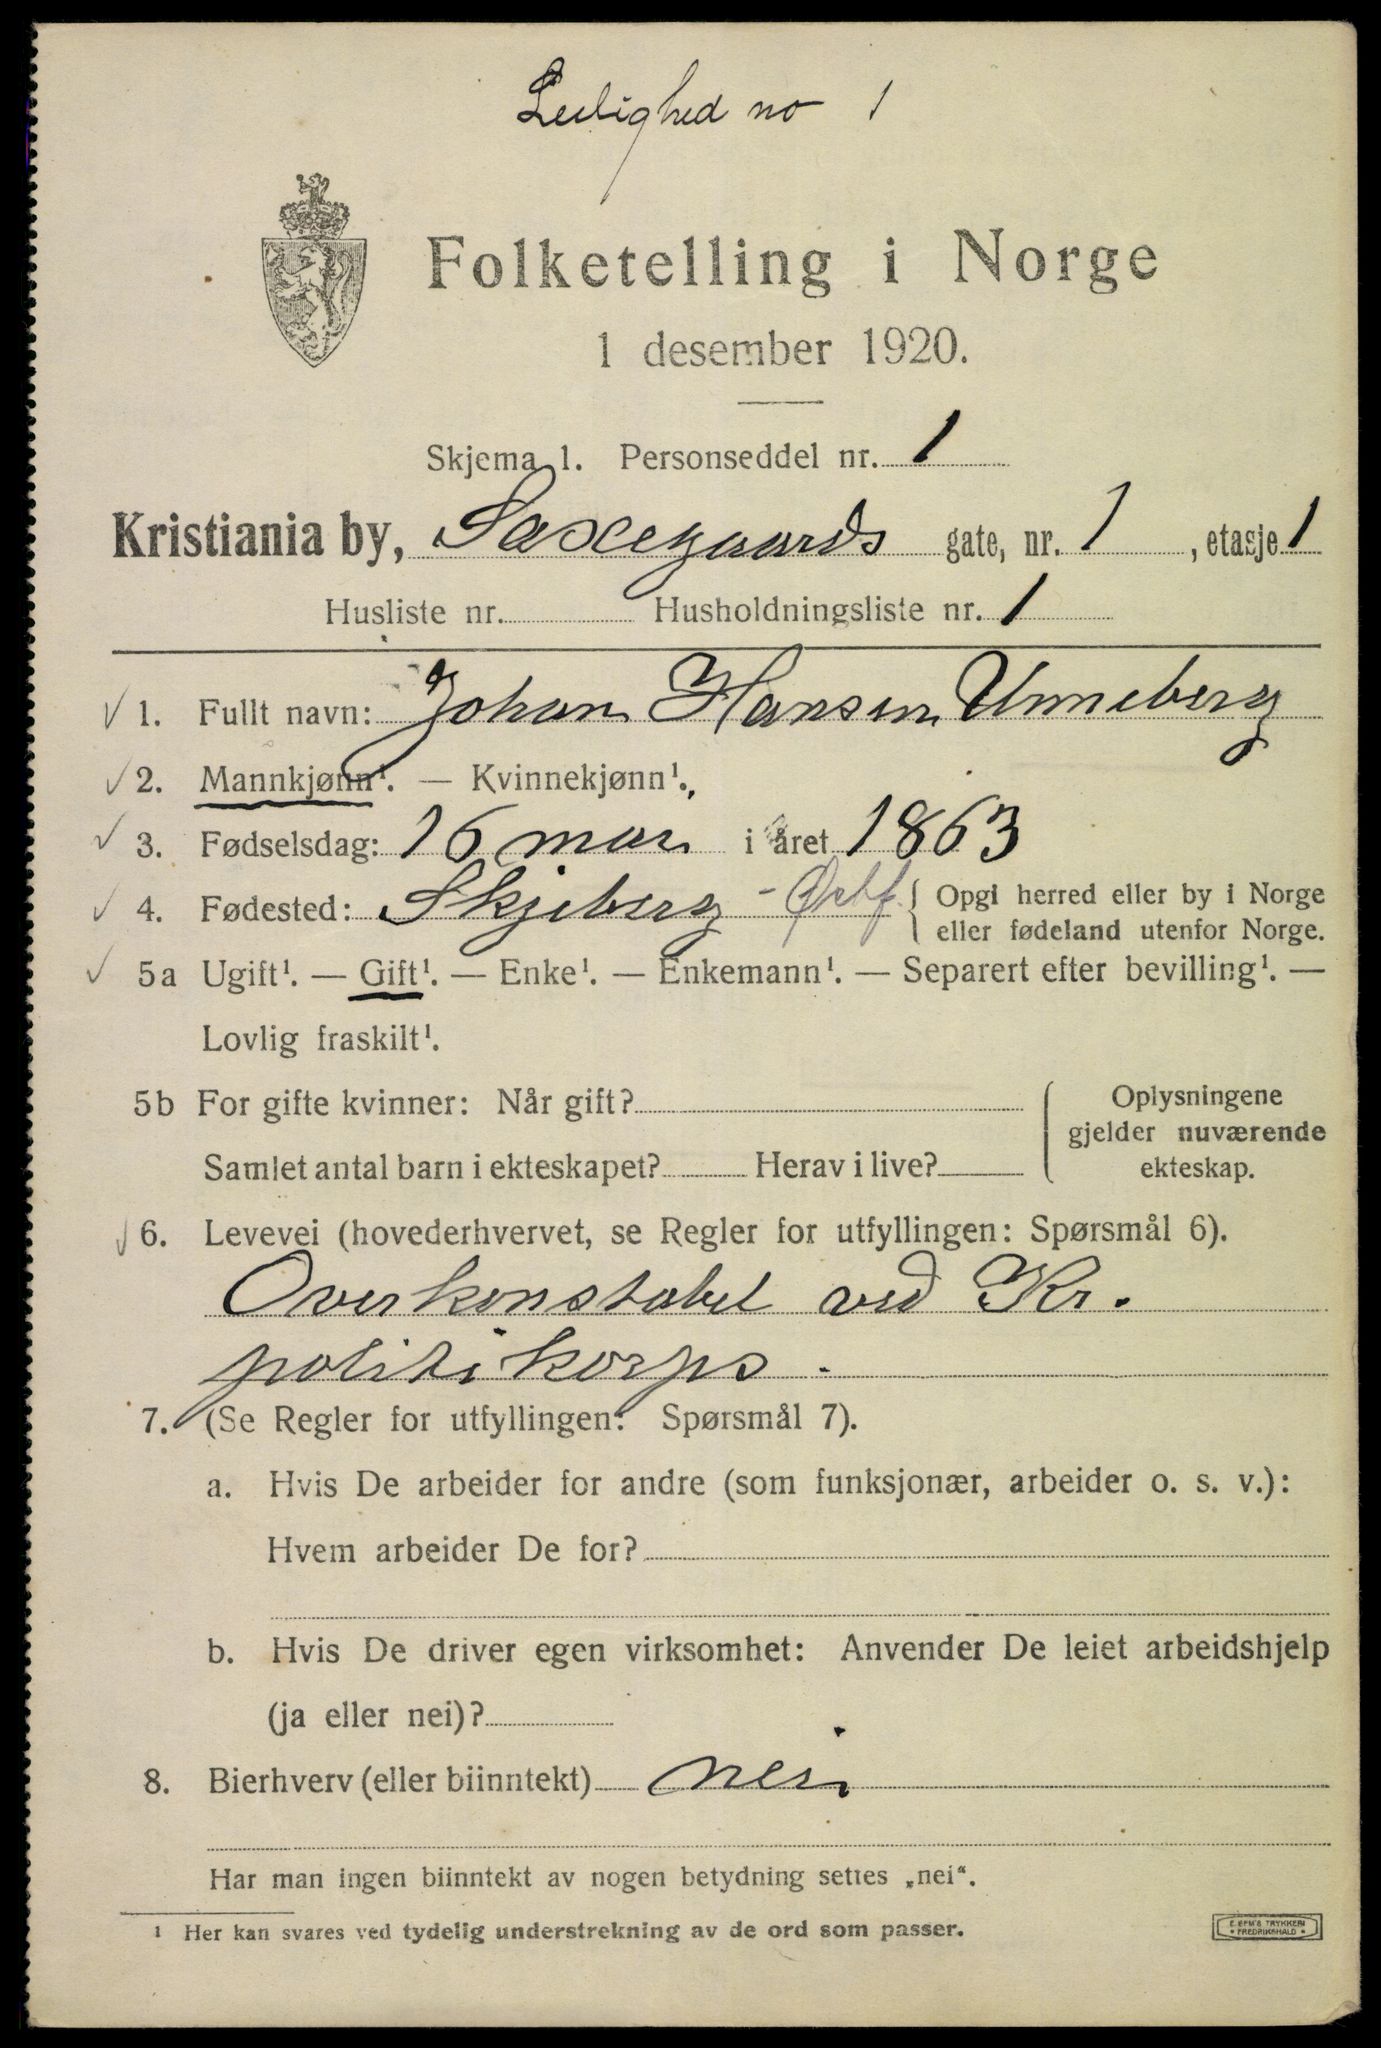 Leilighed no 1
Folketelling i Norge
1 desember 1920.
Skjema 1. Personseddel nr. 1
Kristiania by, Saxegaards gate, nr. 1, etasje 1
Husliste nr. Husholdningsliste nr. 1
1. Fullt navn: Johan Hansen Unneberg
2. Mannkjønn¹. — Kvinnekjønn¹.
3. Fødselsdag: 16 mar i året 1863
4. Fødested: Skjeberg - Østf. { Opgi herred eller by i Norge
eller fødeland utenfor Norge.
5a Ugift¹. — Gift¹. — Enke¹. — Enkemann¹. — Separert efter bevilling¹. —
Lovlig fraskilt¹.
5b For gifte kvinner: Når gift?
Samlet antal barn i ekteskapet? Herav i live?
Oplysningene
gjelder nuværende
ekteskap.
6. Levevei (hovederhvervet, se Regler for utfyllingen: Spørsmål 6).
Overkonstabel ved Kr.
politikorps.
7. (Se Regler for utfyllingen: Spørsmål 7).
a. Hvis De arbeider for andre (som funksjonær, arbeider o. s. v.):
Hvem arbeider De for?
b. Hvis De driver egen virksomhet: Anvender De leiet arbeidshjelp
(ja eller nei)?
8. Bierhverv (eller biinntekt) nei
Har man ingen biinntekt av nogen betydning settes „nei“.
¹ Her kan svares ved tydelig understrekning av de ord som passer.
E. SEM'S TRYKKERI
FREDRIKSHALD